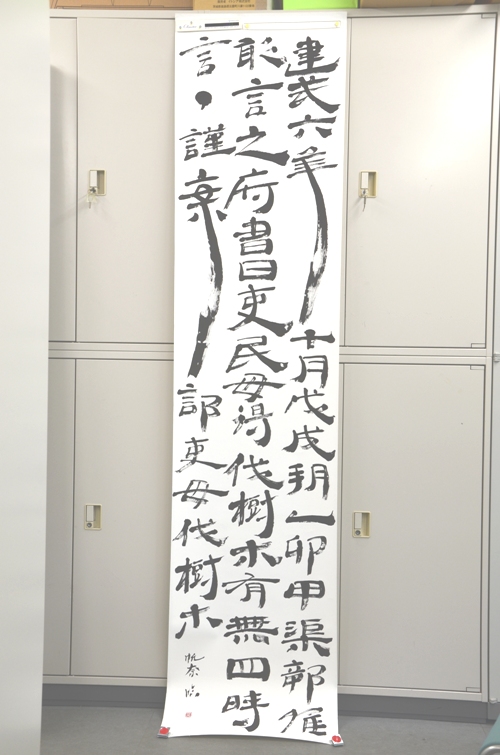 建武六年七月戊戌朔乙卯甲渠鄣候
敢言之府書曰吏民毋得伐樹木有無四時
言●謹案部吏毋伐樹木
帆奈臨